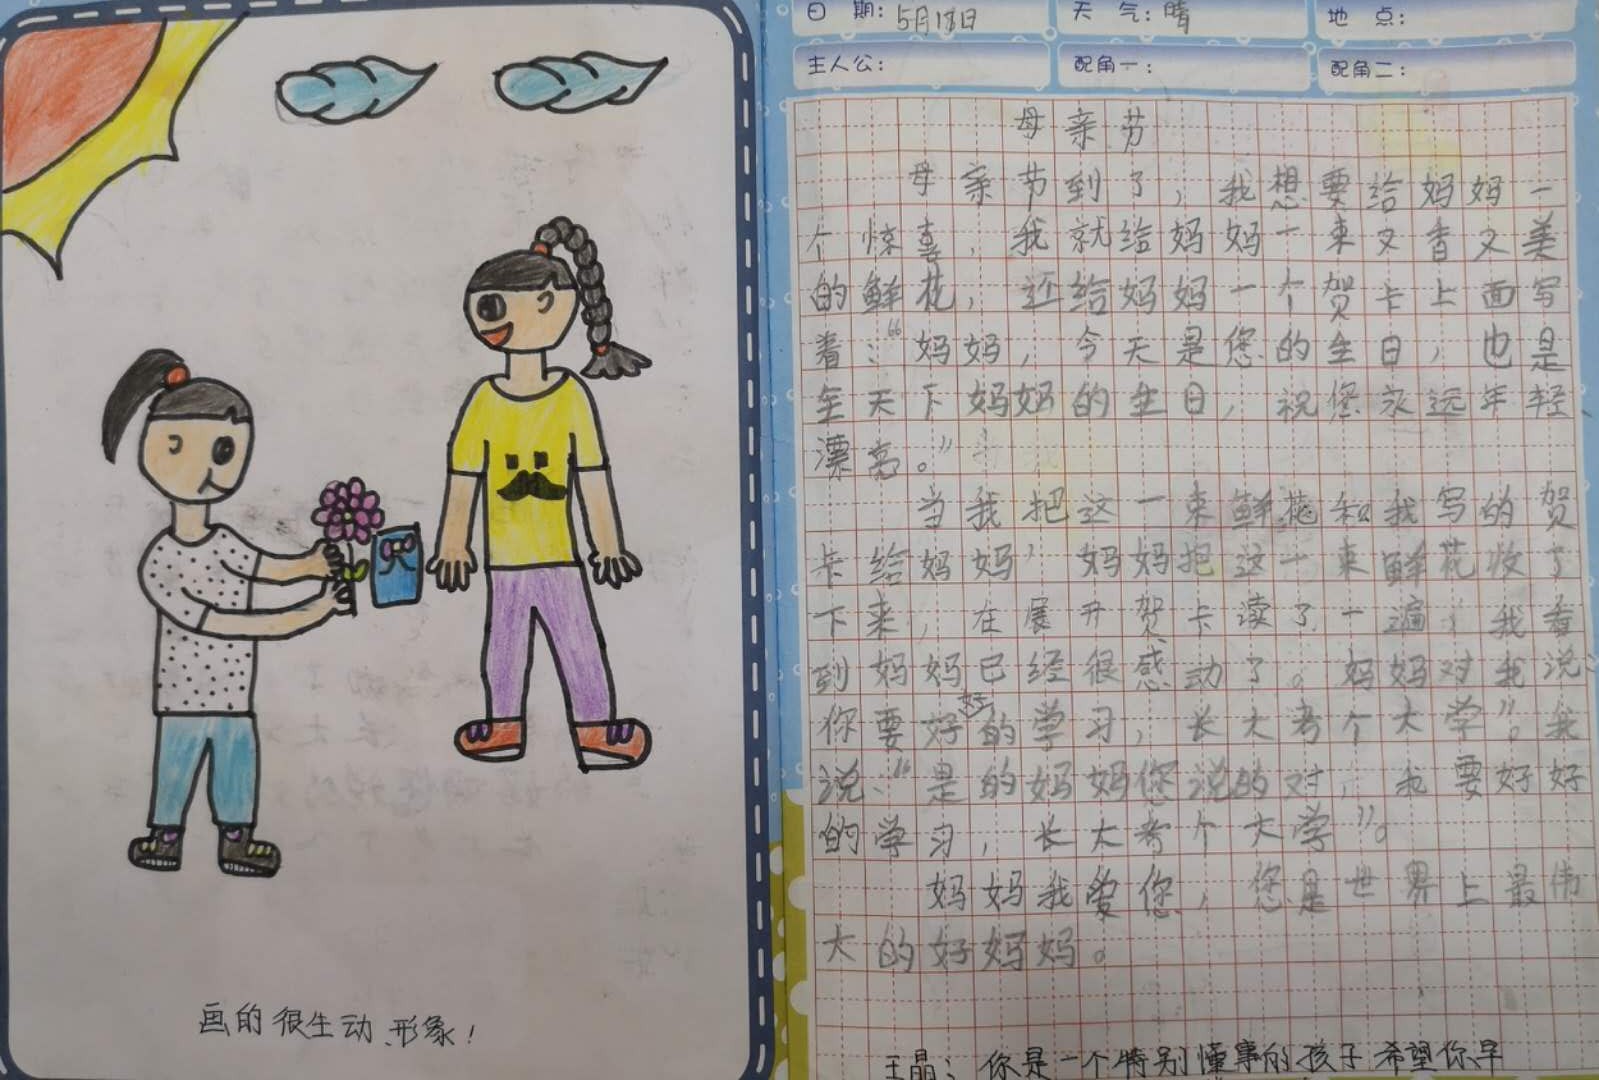 画的很生动、形象！
日 期：5月18日
天 气：晴
地 点：
主人公：
配角一：
配角二：
母亲节
母亲节到了，我想要给妈妈一
个惊喜，我就给妈妈一束又香又美
的鲜花，还给妈妈一个贺卡上面写
着：“妈妈，今天是您的生日，也是
全天下妈妈的生日，祝您永远年轻、
漂亮。”
当我把这一束鲜花和我写的贺
卡给妈妈，妈妈把这一束鲜花收了
下来，在展开贺卡读了一遍，我看
到妈妈已经很感动了。妈妈对我说：
你要好好的学习，长大考个大学”。我
说：“是的妈妈您说的对，我要好好
的学习，长大考个大学”。
妈妈我爱您，您是世界上最伟
大的好妈妈。
王晶：你是一个特别懂事的孩子希望你早